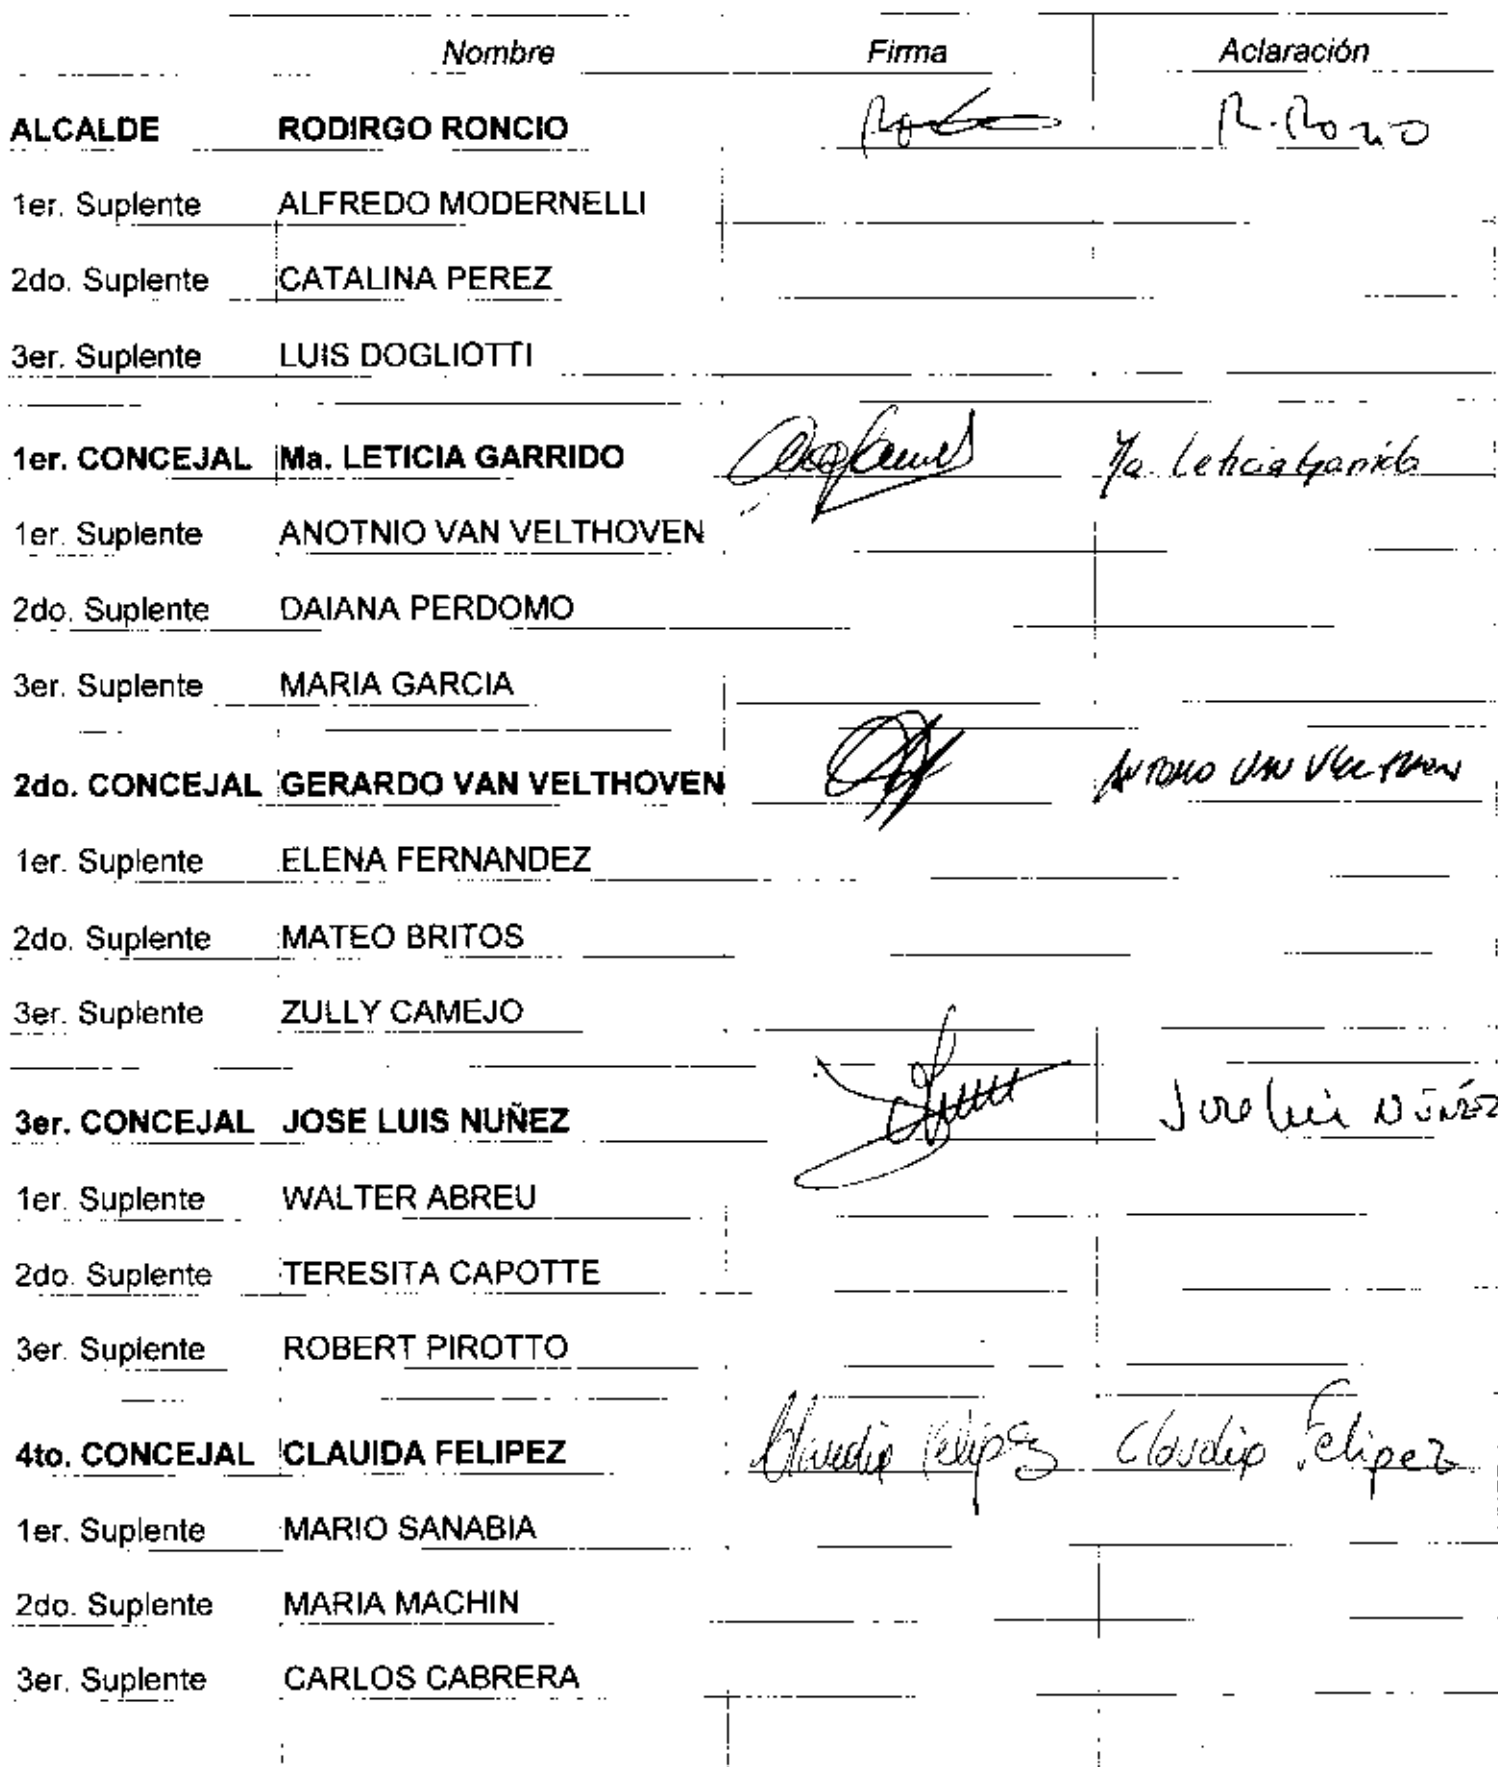 Nombre Firma Aclaración
ALCALDE RODIRGO RONCIO R. Roncio
1er. Suplente ALFREDO MODERNELLI
2do. Suplente CATALINA PEREZ
3er. Suplente LUIS DOGLIOTTI
1er. CONCEJAL Ma. LETICIA GARRIDO Ma. Leticia Garrido
1er. Suplente ANOTNIO VAN VELTHOVEN
2do. Suplente DAIANA PERDOMO
3er. Suplente MARIA GARCIA
2do. CONCEJAL GERARDO VAN VELTHOVEN ANTONIO VAN VELTHOVEN
1er. Suplente ELENA FERNANDEZ
2do. Suplente MATEO BRITOS
3er. Suplente ZULLY CAMEJO
3er. CONCEJAL JOSE LUIS NUÑEZ Jose Luis NÚÑEZ
1er. Suplente WALTER ABREU
2do. Suplente TERESITA CAPOTTE
3er. Suplente ROBERT PIROTTO
4to. CONCEJAL CLAUIDA FELIPEZ Claudia Felipez Claudia Felipez
1er. Suplente MARIO SANABIA
2do. Suplente MARIA MACHIN
3er. Suplente CARLOS CABRERA